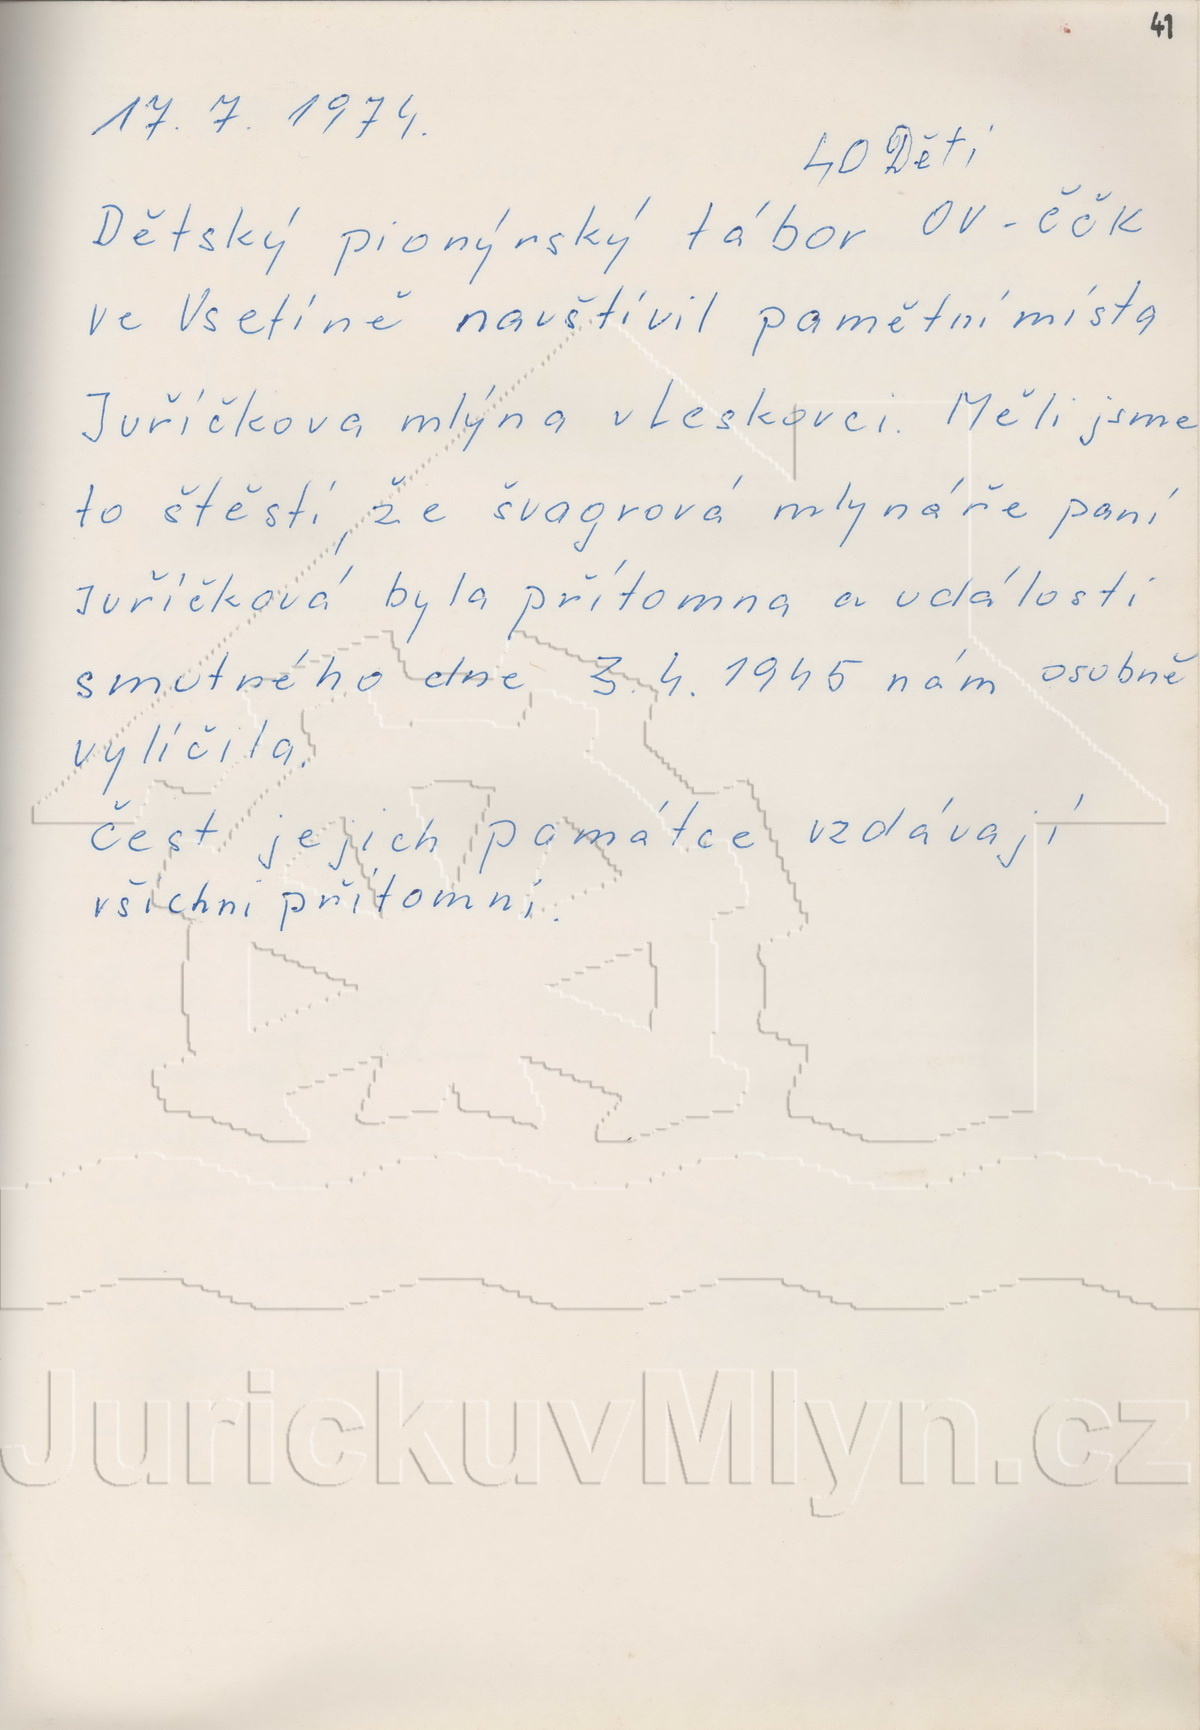 41
17. 7. 1974.
40 Dětí
Dětský pionýrský tábor OV-ČČK
ve Vsetíně navštívil pamětní místa
Juříčkova mlýna v Leskovci. Měli jsme
to štěstí, že švagrová mlynáře paní
Juříčková byla přítomna a události
smutného dne 3. 4. 1945 nám osobně
vylíčila.
Čest jejich památce vzdávají
všichni přítomní.
JurickuvMlyn.cz